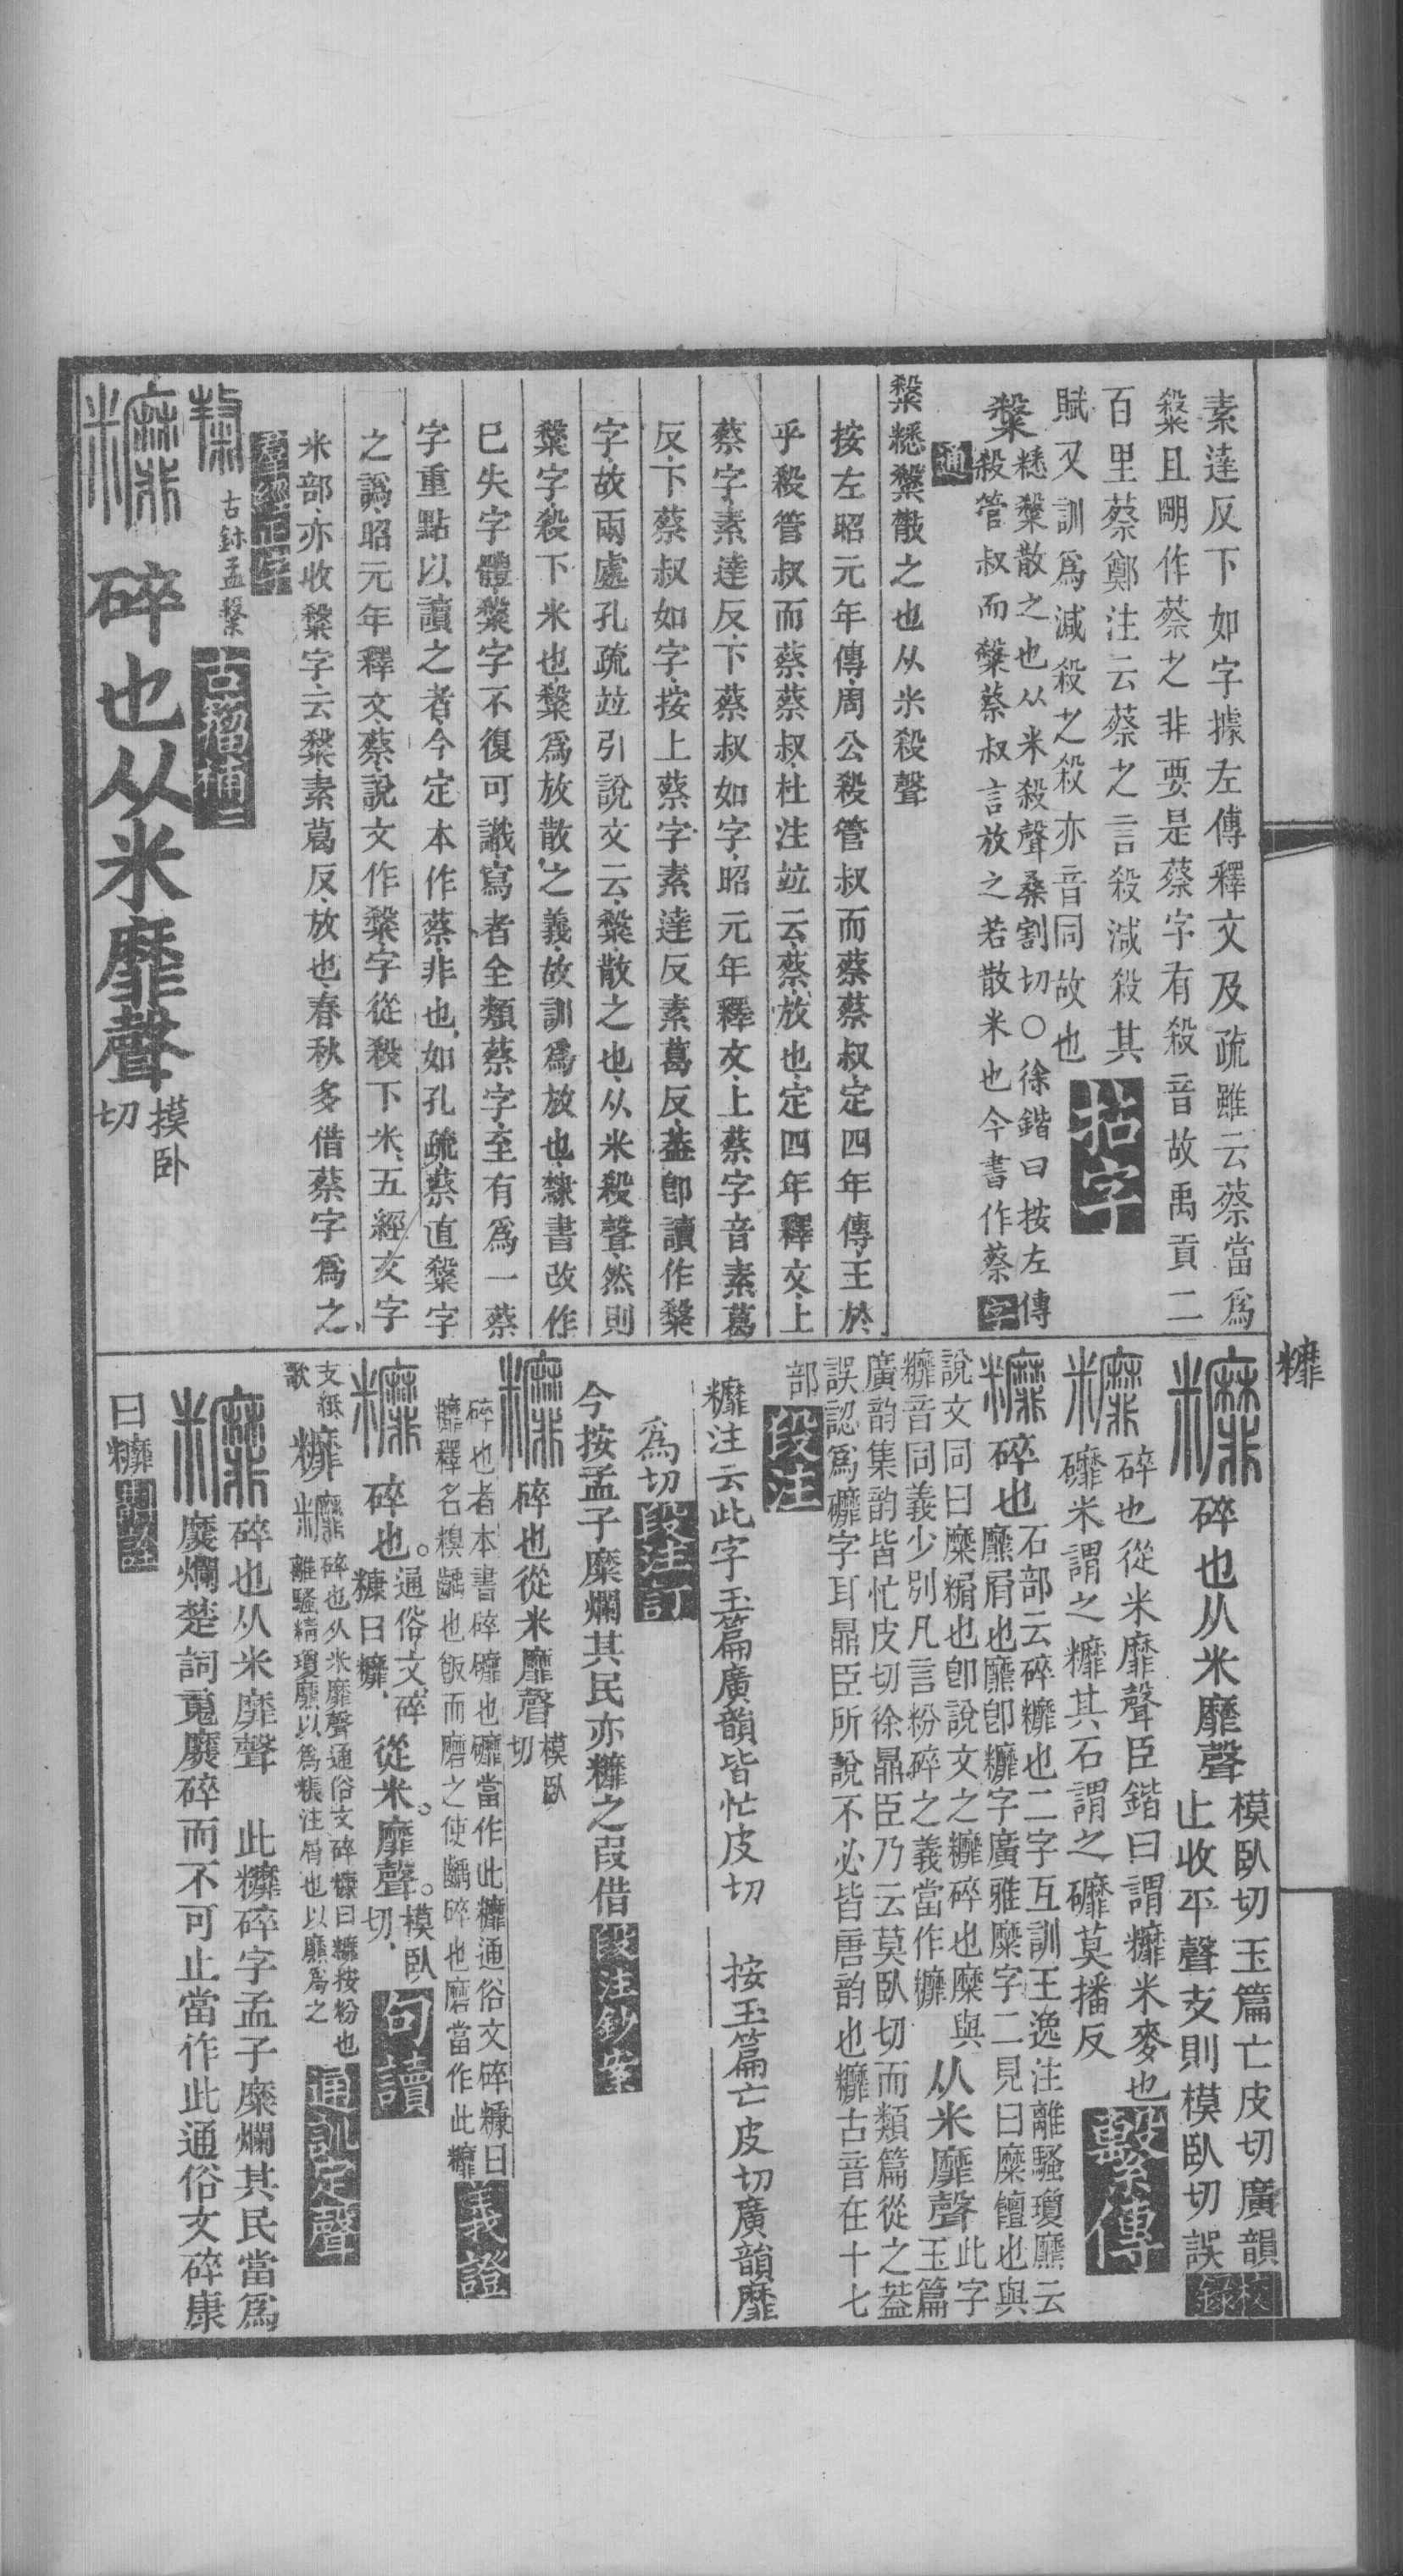 素達反下如字據左傳釋文及疏雖云蔡當爲
䊛且明作蔡之非要是蔡字有殺音故禹貢二
百里蔡鄭注云蔡之言殺減殺其
賦又訓爲減殺之殺亦音同故也
䊛𥻦䊛散之也从米殺聲桑割切〇徐鍇曰按左傳
殺管叔而䊛蔡叔言放之若散米也今書作蔡
䊛𥻦䊛散之也从米殺聲
按左昭元年傳周公殺管叔而蔡蔡叔定四年傳王於
乎殺管叔而蔡蔡叔杜注竝云蔡放也定四年釋文上
蔡字素達反下蔡叔如字昭元年釋文上蔡字音素葛
反下蔡叔如字按上蔡字素達反素葛反葢卽讀作䊛
字故兩處孔疏竝引說文云䊛散之也从米殺聲然則
䊛字殺下米也䊛爲放散之義故訓爲放也隸書改作
巳失字體䊛字不復可識寫者全類蔡字至有爲一蔡
字重點以讀之者今定本作蔡非也如孔疏蔡直䊛字
之譌昭元年釋文蔡說文作䊛字從殺下米五經文字
米部亦收䊛字云䊛素葛反放也春秋多借蔡字爲之
古籀補
碎也从米靡聲 摸卧切
𥽰
𥽰碎也从米靡聲 模臥切玉篇亡皮切廣韻
止收平聲支則模臥切誤 校錄
𥽰碎也從米靡聲臣鍇曰謂𥽰米麥也
䃺米謂之𥽰其石謂之䃺莫播反 繫傳
𥽰碎也 石部云碎𥽰也二字互訓王逸注離騷瓊爢云
爢屑也爢卽𥽰字廣雅糜字二見曰糜饘也與
說文同曰糜糏也卽說文之𥽰碎也糜與
𥽰音同義少別凡言粉碎之義當作𥽰 从米靡聲 此字玉篇
廣韵集韵皆忙皮切徐鼎臣乃云莫臥切而類篇從之葢
誤認爲䃺字耳鼎臣所說不必皆唐韵也𥽰古音在十七
部 段注
𥽰注云此字玉篇廣韻皆忙皮切 按玉篇亡皮切廣韻靡
爲切 段注訂
今按孟子糜爛其民亦𥽰之叚借 段注鈔案
𥽰碎也從米靡聲 模臥切
碎也者本書碎䃺也䃺當作此𥽰通俗文碎糠曰
𥽰釋名糗齲也飯而磨之使齲碎也磨當作此𥽰 義證
𥽰碎也。通俗文碎糠曰𥽰、從米。靡聲。模臥切、 句讀
𥽰碎也从米靡聲通俗文碎糠曰𥽰按粉也
離騷精瓊爢以爲粻注屑也以爢爲之 通訓定聲
𥽰碎也从米靡聲 此𥽰碎字孟子糜爛其民當爲
糜爛楚詞䕫糜碎而不可止當作此通俗文碎康
曰𥽰